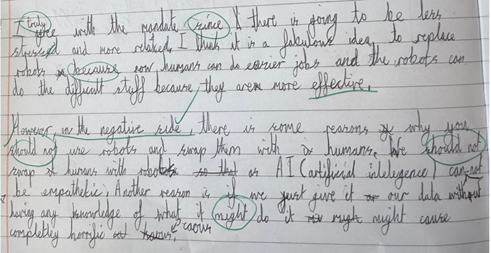 truly
I agree with the mandate since there is going to be less
stressed and more related. I think it is a fabulous idea to replace
robots because now humans can do easier jobs and the robots can
do the difficult stuff because they are more effective.
However, on the negative side, there is some reasons why you
should not use robots and swap them with humans. We should not
swap humans with robots as AI (artificial intelegence) can not
be empathetic. Another reason is if we just give it our data without
having any knowledge of what it might do it might cause
completley horrific
caous